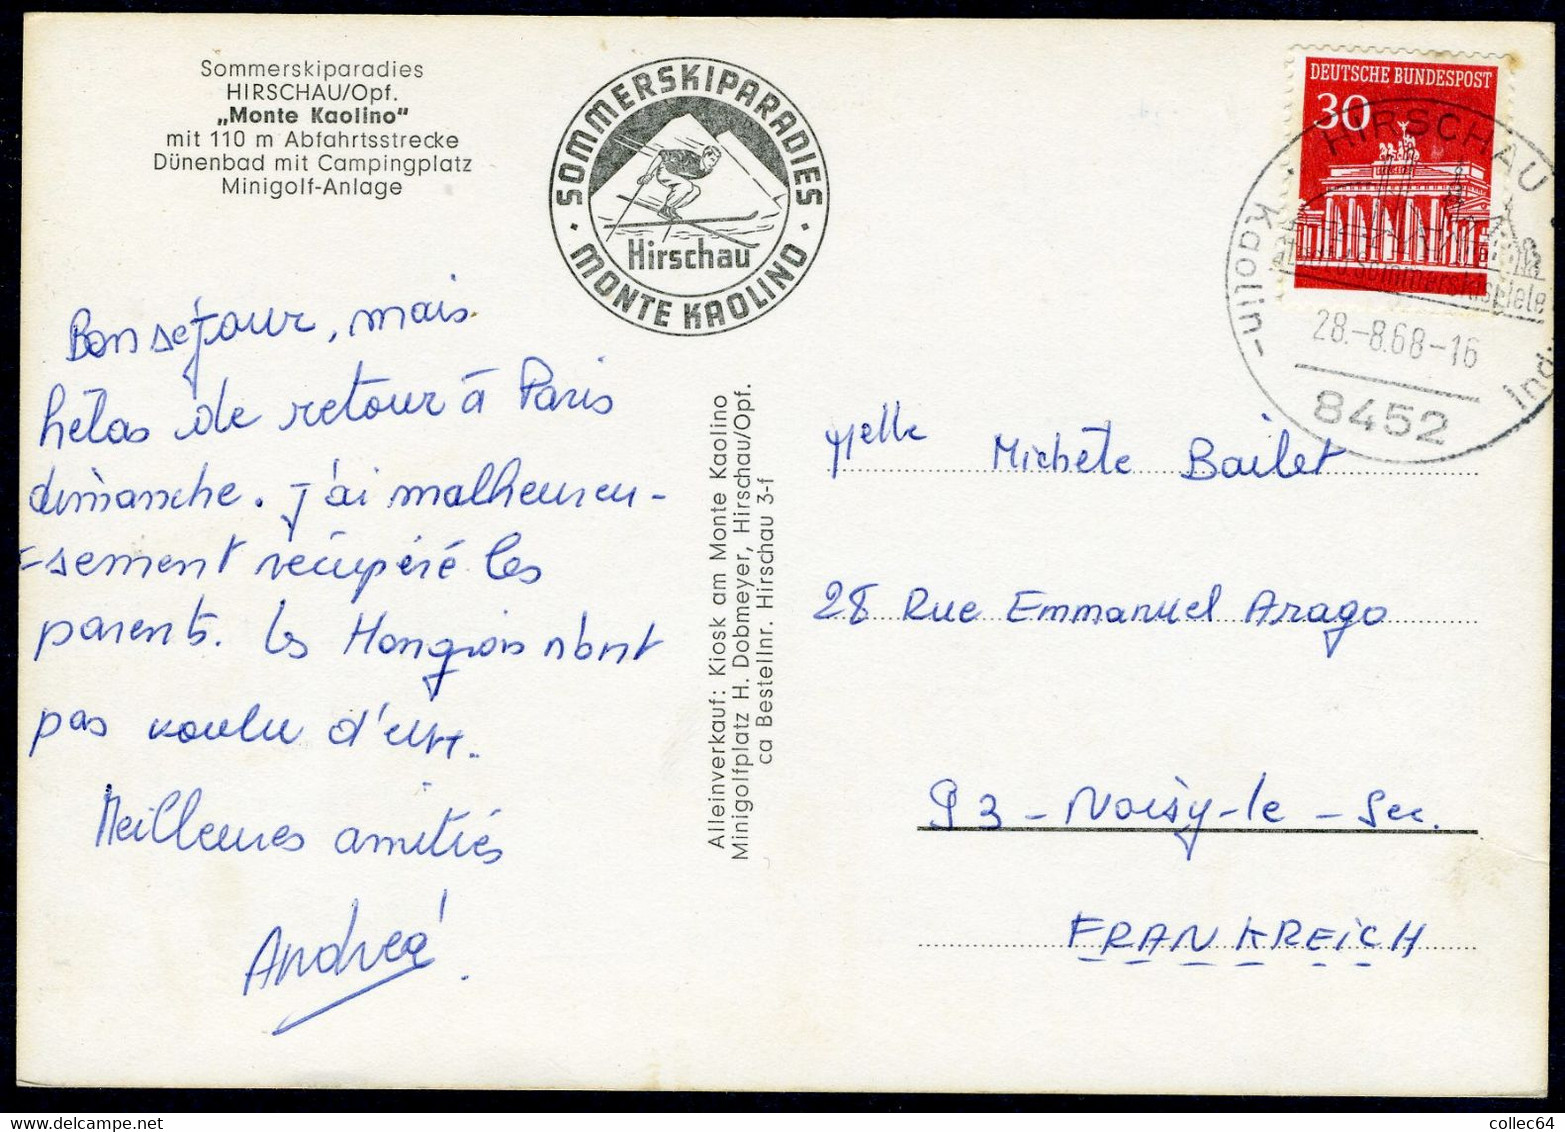 Sommerskiparadies
HIRSCHAU/Opf.
„Monte Kaolino"
mit 110 m Abfahrtsstrecke
Dünenbad mit Campingplatz
Minigolf-Anlage
SOMMERSKIPARADIES
Hirschau
· MONTE KAOLINO ·
Bon séjour, mais
hélas de retour à Paris
dimanche. J'ai malheureu-
-sement récupéré les
parents. Les Hongrois n'ont
pas voulu d'eux.
Meilleures amitiés
Andreé
Alleinverkauf: Kiosk am Monte Kaolino
Minigolfplatz H. Dobmeyer, Hirschau/Opf.
ca Bestellnr. Hirschau 3-f
DEUTSCHE BUNDESPOST
30
HIRSCHAU
Kaolin-
Sommerskispiele
28.-8.68-16
Ind
8452
Melle Michèle Bailet
28 Rue Emmanuel Arago
93 - Noisy-le-Sec.
FRANKREICH
collec64